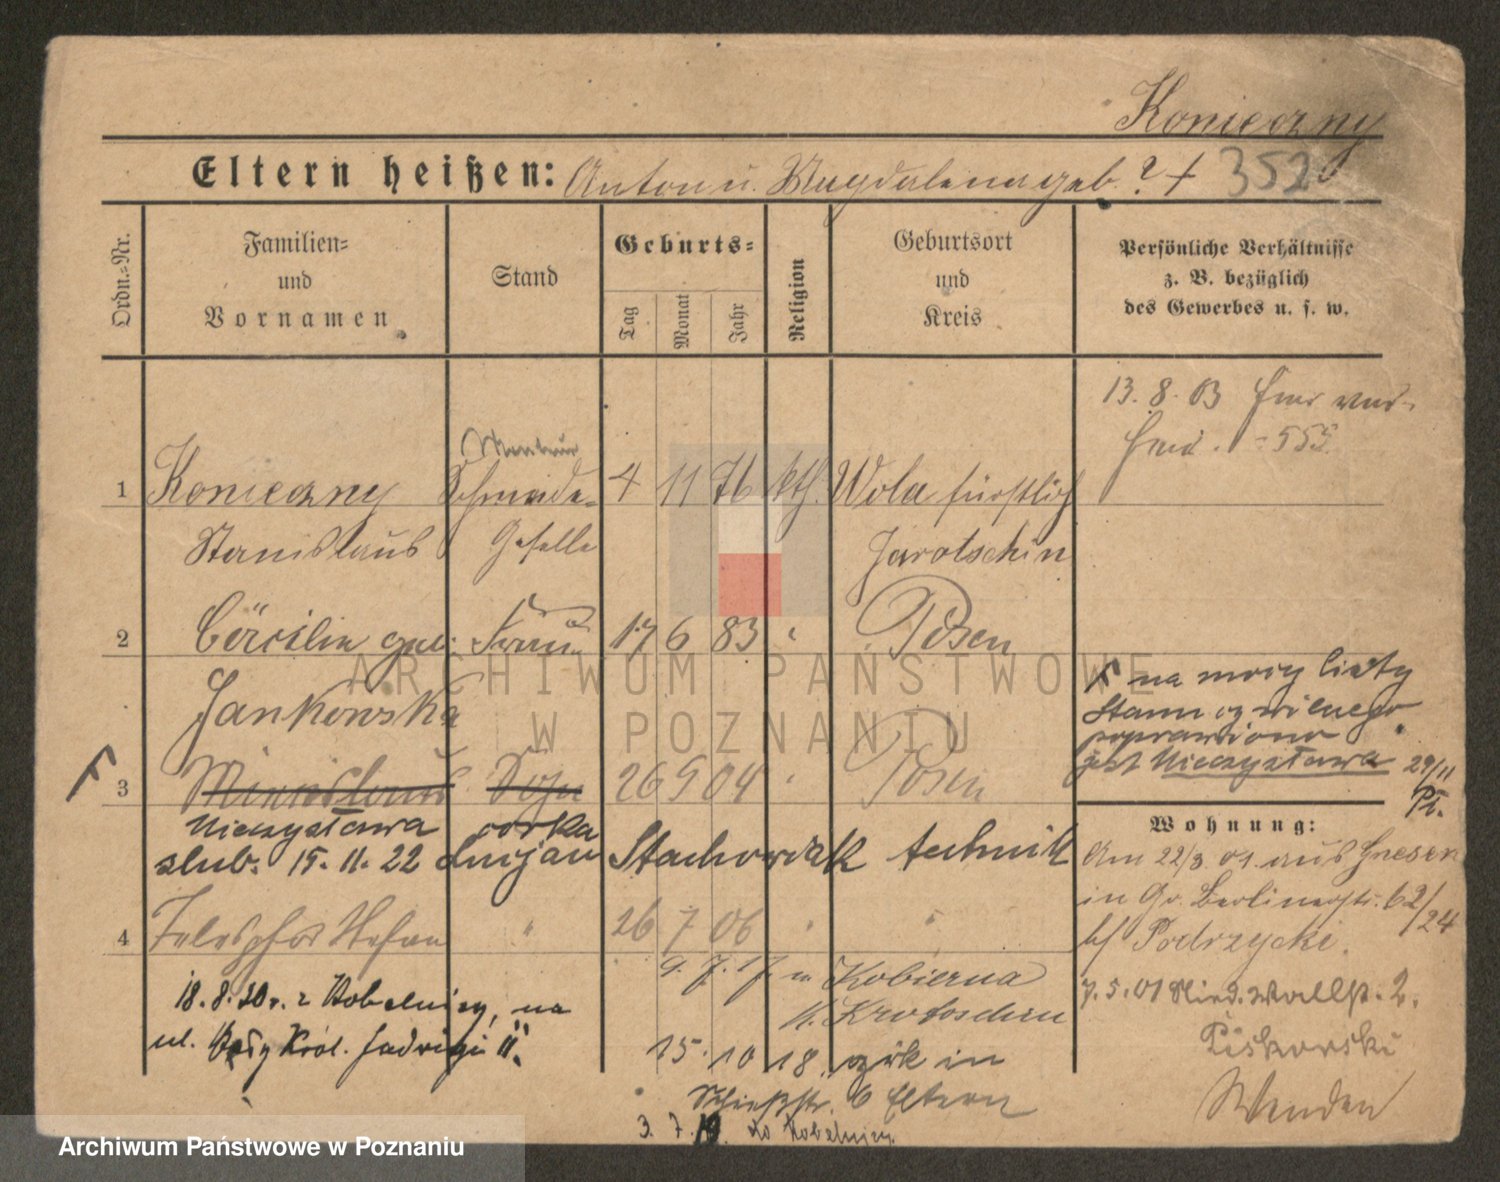 Konieczny
Eltern heißen: Anton u. Magdalena geb. ? +
352
Ordn.-Nr.
Familien-
und
Vornamen
Stand
Geburts-
Tag
Monat
Jahr
Religion
Geburtsort
und
Kreis
Persönliche Verhältnisse
z. B. bezüglich
des Gewerbes u. s. w.
13. 8. 03
555
1 Konieczny Schmiede- 4 11 76 kth. Wola fürstlich
Stanislaus Geselle Jarotschin
2 Cäcilia geb. Frau 17 6 83 " Posen
Jankowska
na mocy
Stanu cywilnego
poprawiono
jest Mieczysława 29/11
3 Mieczislaus Sohn 26 9 04 " Posen
Mieczysława córka
ślub. 15. 11. 22 Lucjan Stachowiak technik
Wohnung:
Am 22/3 01. aus Gnesen
in Gr. Berlinerstr. 62/24
b/ Podrzycki.
4 Telesphor Stefan " 26 7 06 " "
9. 7. 17 n Kobierna
K. Krotoschin
18. 8. 20 r. z Kobelnicy, na
ul. Król. Jadwigi 11.
7. 5. 01 Nied. Wallstr. 2.
Piskorski
Wenden
15. 10 18. zrk in
Schießstr. 6 Eltern
3. 7. 19. do Kobelnicy.
ARCHIWUM PAŃSTWOWE
W POZNANIU
Archiwum Państwowe w Poznaniu